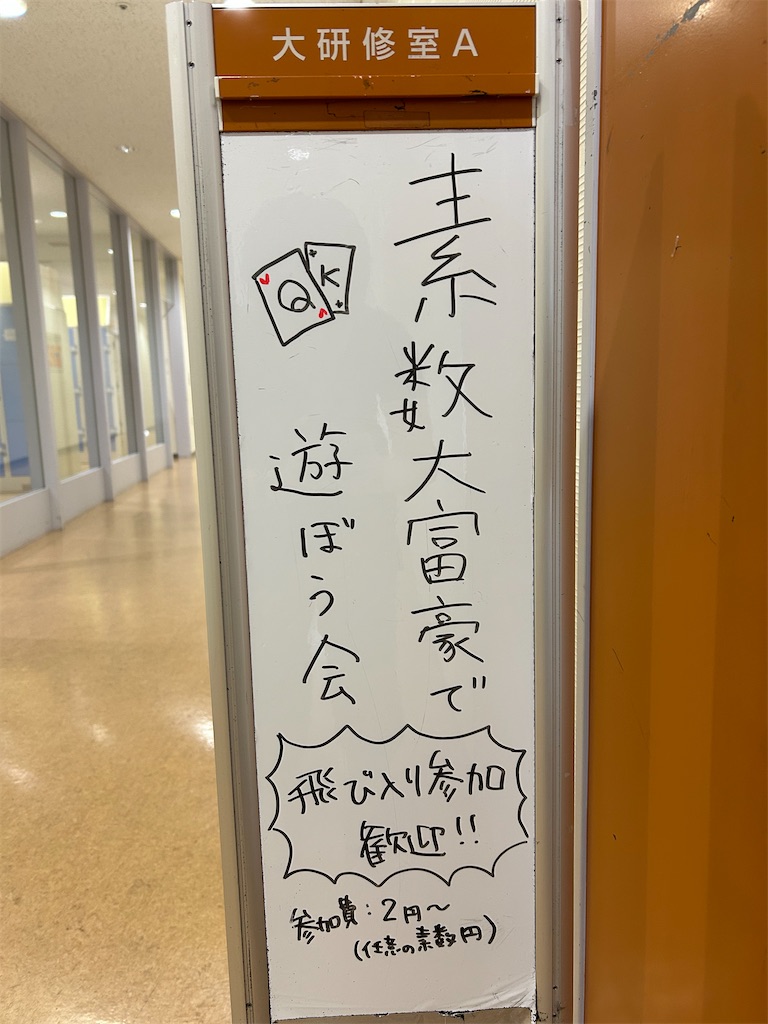 大研修室A
素数大富豪で
遊ぼう会
Q
K
飛び入り参加
歓迎!!
参加費:2円〜
(任意の素数円)